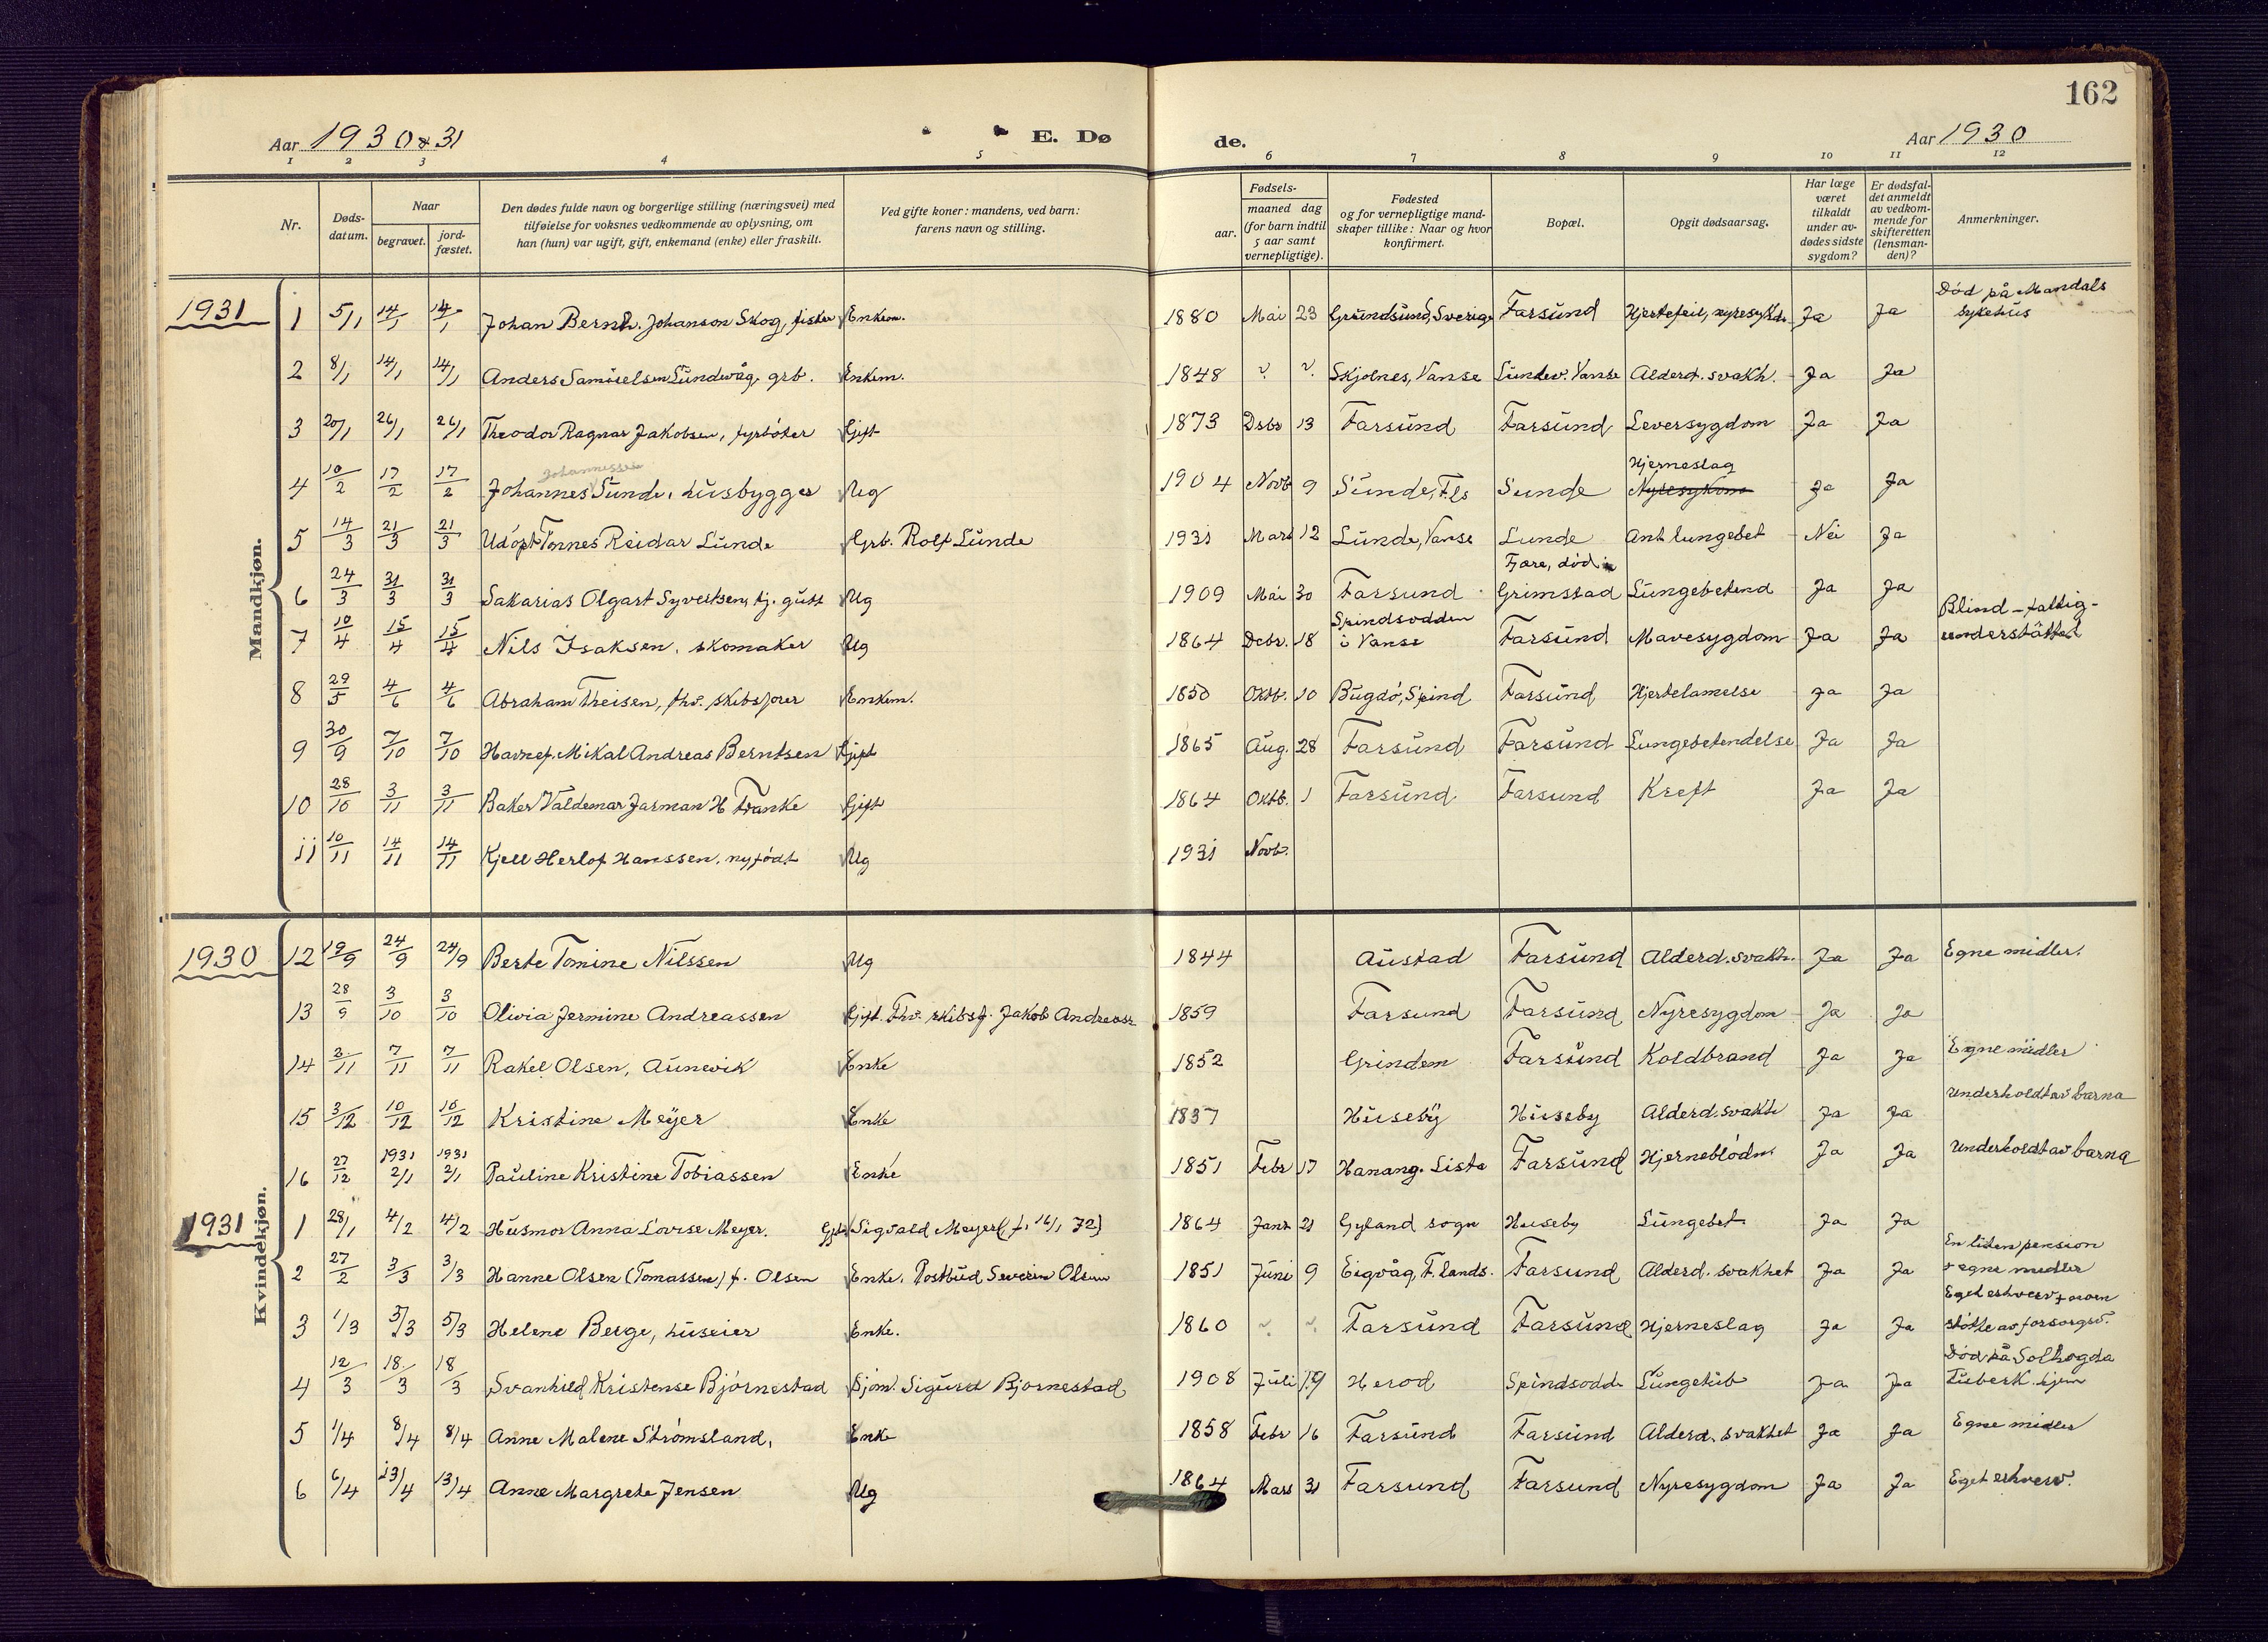 162
Aar 1930 & 31 E. Dø de. Aar 1930
1 2 3 4 5 6 7 8 9 10 11 12
Nr. Døds-datum. Naar begravet. jord-fæstet. Den dødes fulde navn og borgerlige stilling (næringsvei) med tilføielse for voksnes vedkommende av oplysning, om han (hun) var ugift, gift, enkemand (enke) eller fraskilt. Ved gifte koner: mandens, ved barn: farens navn og stilling. Fødsels- aar. maaned dag (for barn indtil 5 aar samt vernepligtige). Fødested og for vernepligtige mand-skaper tillike: Naar og hvor konfirmert. Bopæl. Opgit dødsaarsag. Har læge været tilkaldt under av-dødes sidste sygdom? Er dødsfal-det anmeldt av vedkom-mende for skifteretten (lensman-den)? Anmerkninger.
Mandkjøn.
1931 1 5/1 14/1 14/1 Johan Bernh. Johanson Skog, fisker Enkem. 1880 Mai 23 Grundsund, Sverige Farsund Hjertefeil, nyresykd. Ja Ja Død på Mandals sykehus
2 8/1 14/1 14/1 Anders Samuelsen Lundevåg. grb. Enkem. 1848 ? ? Skjolnes, Vanse Lundev. Vanse Alderd. svakh. Ja Ja
3 20/1 26/1 26/1 Theodor Ragnar Jakobsen, fyrbøter Gift 1873 Dsbr 13 Farsund Farsund Leversygdom Ja Ja
4 10/2 17/2 17/2 Johannes Johannessen Sunde, husbygger Ug 1904 Novb 9 Sunde, F.ls Sunde Hjerneslag Ja Ja
5 14/3 21/3 21/3 Udøpt Tønnes Reidar Lunde Grb. Rolf Lunde 1931 Mars 12 Lunde, Vanse Lunde Ant lungebet Nei Ja
6 24/3 31/3 31/3 Sakarias Olgart Syvertsen, tj. gutt Ug 1909 Mai 30 Farsund Fjære, død i Grimstad Lungebetend Ja Ja
7 10/4 15/4 15/4 Nils Isaksen, skomaker Ug 1864 Debr. 18 Spindsodden i Vanse Farsund Mavesygdom Ja Ja Blind - fattig-understøttet
8 29/5 4/6 4/6 Abraham Theisen, fhv. skibsfører Enkem. 1850 Oktb. 10 Bugdø, Spind Farsund Hjertelamelse Ja Ja
9 30/9 7/10 7/10 Havnef. Mikal Andreas Berntsen Gift 1865 Aug. 28 Farsund Farsund Lungebetendelse Ja Ja
10 28/10 3/11 3/11 Baker Valdemar Jarman H Franke Gift 1864 Oktb. 1 Farsund Farsund Kreft Ja Ja
11 10/11 14/11 14/11 Kjell Herlof Hanssen, nyfødt Ug 1931 Novb.
Kvindekjøn.
1930 12 19/9 24/9 24/9 Berte Tomine Nilssen Ug 1844 Austad Farsund Alderd. svakh. Ja Ja Egne midler.
13 28/9 3/10 3/10 Olivia Jermine Andreassen Gift. Fhv. skibsf. Jakob Andreass. 1859 Farsund Farsund Nyresygdom Ja Ja
14 2/11 7/11 7/11 Rakel Olsen, Aunevik Enke 1852 Grindem Farsund Koldbrand Ja Ja Egne midler
15 3/12 10/12 10/12 Kristine Meÿer Enke 1837 Huseby Huseby Alderd. svakh Ja Ja Underholdt av barna
16 27/12 1931 2/1 1931 2/1 Pauline Kristine Tobiassen Enke 1851 Febr 17 Hanang. Lista Farsund Hjerneblødn. Ja Ja Underholdt av barna
1931 1 28/1 4/2 4/2 Husmor Anna Lovise Meyer. Gift Sigvald Meyer (f. 16/1 72) 1864 Janr 21 Gyland sogn Huseby Lungebet. Ja Ja
2 27/2 3/3 3/3 Hanne Olsen (Tomassen) f. Olsen Enke, Postbud Severin Olsen 1851 Juni 9 Eigvåg, F. lands. Farsund Alderd. svakhet Ja Ja En liten pension + egne midler
3 1/3 5/3 5/3 Helene Berge, huseier Enke. 1860 ? ? Farsund Farsund Hjerneslag Ja Ja Eget erhverv + noen støtte av forsorgsv.
4 12/3 18/3 18/3 Svanhild Kristense Bjørnestad Sjøm. Sigurd Bjornestad 1908 Juli 19 Herod Spindsodd. Lungetub Ja Ja Død på Solhøgda Tuberk. hjem
5 1/4 8/4 8/4 Anne Malene Strømsland, Enke 1858 Febr 16 Farsund Farsund Alderd. svakhet Ja Ja Egne midler
6 6/4 13/4 13/4 Anne Margrete Jensen Ug 1864 Mars 31 Farsund Farsund Nyresygdom Ja Ja Eget erhverv.